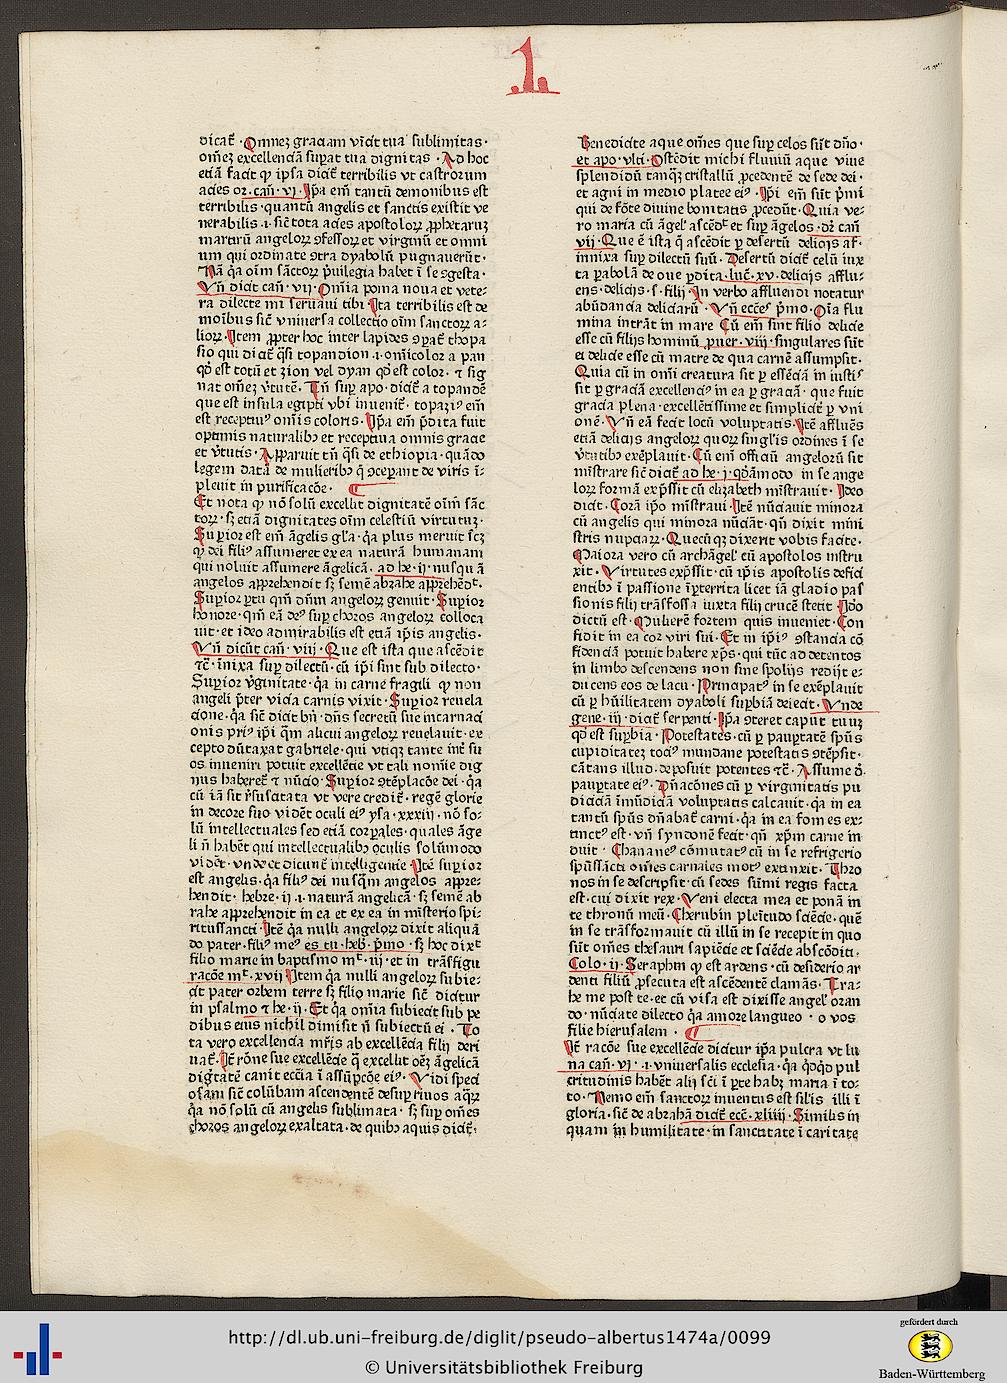 .1.
dicat̄ · Omnez graciam vīcit tua sublimitas ·
om̄ez excellenciā suꝑat tua dignitas · Ad hoc
etiā facit ꝙ ipsa dicat̄ terribilis vt castrorum
acies oz · cañ · vj · Ip̄a em̄ tantū demonibus est
terribilis · quantū angelis et sanctis existit ve
nerabilis · .i. sic̄ tota acies apostoloꝝ ꝓphetaruꝫ
martirū angeloꝝ ꝯfessoꝝ et virginū et omni
um qui ordinate ꝯtra dyabolū pugnauerūt ·
Nā q̇a oīm sāctoꝝ p̄uilegia habet ī se ꝯgesta ·
Vn̄ dicit cañ · vij · Om̄ia poma noua et vete-
ra dilecte mi seruaui tibi · Ita terribilis est de
moībus sic̄ vniuersa collectio oīm sanctoꝝ a-
lioꝝ · Item ꝓpter hoc inter lapides ꝯꝑat̄ thopa
sio qui dicat̄ q̄si topandion .i. om̄icolor a pan
qḋ est totū et zion vel dyan qḋ est color · ⁊ sig
nat om̄eꝫ v̄tutē · Tn̄ suꝑ apo · dicat̄ a topandē
que est insula egipti vbi inuenit̄ · topaziꝰ em̄
est receptiuꝰ om̄is coloris · Ip̄a em̄ p̄dita fuit
optimis naturalibꝫ et receptiua omnis gracie
et v̄tutis · Apparuit tn̄ q̄si de ethiopia · quādo
legem datā de mulieribꝫ q̄ ꝯceꝑant de viris ī-
pleuit in purificacōe ·
Et nota ꝙ nō solū excellit dignitatē oīm sāc
toꝝ · sꝫ etiā dignitates oīm celestiū virtutuꝫ ·
Suꝑior est em̄ āgelis gl̄a · q̇a plus meruit scꝫ
ꝙ dei filiꝰ assumeret ex ea naturā humanam
qui noluit assumere āgelicā · ad he · ij · nusqu ā
angelos apprehendit sꝫ semē abrahe apprehēdᵗ ·
Suꝑior ꝑtu qm̄ dn̄m angeloꝝ genuit · Suꝑior
honore · qm̄ eā deꝰ suꝑ choros angeloꝝ colloca
uit · et ideo admirabilis est etiā ip̄is angelis ·
Vn̄ dicūt cañ · viij · Que est ista que ascēdit
⁊c̄ · īnixa suꝑ dilectū · cū ip̄i sint sub dilecto ·
Suꝑior v̄ginitate · q̇a in carne fragili ꝙ non
angeli p̄ter vicia carnis vixit · Suꝑior reuela
cione · q̇a sic̄ dicit bn̄ · dn̄s secretū sue incarnaci
onis priꝰ ip̄i q̄m alicui angeloꝝ reuelauit · ex
cepto dūtaxat gabriele · qui vtiqꝫ tante int̄ su
os inueniri potuit excellētie vt tali nomīe dig
nus haberet̄ ⁊ nūcio · Suꝑior ꝯtēplacōe dei · q̇a
cū iā sit r̄suscitata vt vere credit̄ · regē glorie
in decore suo vidēt oculi eiꝰ ysa · xxxiij · nō so-
lū intellectuales sed etiā corꝑales · quales āge
li n̄ habēt qui intellectualibꝫ oculis solūmodo
vidēt · vnde et dicunt̄ intelligencie · Itē suꝑior
est angelis · q̇a filiꝰ dei nusq̄m angelos appre-
hendit · hebre · ij · .i. naturā angelicā · sꝫ semē ab
rahe apprehendit in ea et ex ea in misterio spi-
ritussancti · Itē q̇a nulli angeloꝝ dixit aliquā
do pater · filiꝰ meꝰ es tu · heb̄ · p̄mo · sꝫ hoc dixᵗ
filio marie in baptismo mᵗ · iij · et in trāsfigu
racōe mᵗ · xvij · Item q̇a nulli angeloꝝ subie-
cit pater orbem terre sꝫ filio marie sic̄ dicitur
in psalmo ⁊ he · ij · Et q̇a om̄ia subiecit sub pe
dibus eius nichil dimisit n̄ subiectū ei · To
ta vero excellencia mr̄is ab excellēcia filij deri
uat̄ · It̄ rōne sue excellēcie q̄ excellit oēꝫ āgelicā
digtatē canit ecc̄ia ī assūpcōe eiꝰ · Vidi speci
osam sic̄ colūbam ascendentē desuꝑ riuos aqꝝ
q̇a nō solū cū angelis sublimata · sꝫ suꝑ om̄es
choros angeloꝝ exaltata · de quibꝫ aquis dicit̄ ·
Benedicite aque om̄es que suꝑ celos sūt dn̄o ·
et apo · vlti · Ostēdit michi fluuiū aque viue
splendidū tanqꝫ cristallū ꝓcedentē de sede dei ·
et agni in medio platee eiꝰ · Ip̄i em̄ sūt p̄mi
qui de fōte diuine bonitatis ꝓcedūt · Quia ve-
ro maria cū āgelˀ ascēdᵗ et suꝑ āgelos · dꝛ cañ
vij · Que ē ista q̄ ascēdit ꝑ desertū delicijs af-
innixa suꝑ dilectū suū · Desertū dicit̄ celū iux
ta ꝑabolā de oue ꝑdita · luc̄ · xv · delicijs afflu-
ens · delicijs · s · filij · In verbo affluendi notatur
abūdancia deliciarū · Vn̄ ecc̄eˢ p̄mo · Oīa flu
mina intrāt in mare · Cū em̄ sint filio delicie
esse cū filijs hominū ꝓuer · viij · singulares sūt
ei delicie esse cū matre de qua carnē assumpsit ·
Quia cū in om̄i creatura sit ꝑ essēciā in iustiˢ
sit ꝑ graciā excellenciꝰ in ea ꝑ graciā · que fuit
gracia plena · excellētissime et simplicit̄ ꝑ vni
onē · Vn̄ eā fecit locū voluptatis · Itē affluēs
etiā delicijs angeloꝝ quoꝝ sing̓lis ordines ī se
v̄tutibꝫ exēplauit · Cū em̄ officiū angelorū sit
mīstrare sic̄ dicit̄ ad he · j · qḋāmodo in se ange
loꝝ formā exp̄ssit cū elizabeth mīstrauit · Ideo
dicit · Corā ip̄o mīstraui · Itē nūciauit minora
cū angelis qui minora nūciāt · qn̄ dixit mini
stris nupciaꝝ · Quecūqꝫ dixerit vobis facite ·
Maiora vero cū archāgelˀ cū apostolos instru
xit · Virtutes exp̄ssit · cū ip̄is apostolis defici
entibꝫ ī passione īꝑterrita licet iā gladio pas
sionis filij trāsfossa iuxta filij crucē stetit · Iḋo
dictū est · Mulierē fortem quis inueniet · Con
fidit in ea cor viri sui · Et in ip̄iꝰ ꝯstancia cō
fidenciā potuit habere xp̄s · qui tūc ad detentos
in limbo descendens non sine spolijs redijt e-
ducens eos de lacu · Principatꝰ in se exēplauit
cū ꝑ hūilitatem dyaboli suꝑbiā deiecit · Vnde
gene · iij · dicit̄ serpenti · Ip̄a ꝯteret caput tuuꝫ
qḋ est suꝑbia · Potestates · cū ꝑ pauꝑtatē spūs
cupiditatez tociꝰ mundane potestatis ꝯtēpsit ·
cātans illud · deposuit potentes ⁊c̄ · Assume ḋ ·
pauꝑtate eiꝰ · Dn̄acōnes cū ꝑ virginitatis pu
diciciā īmūdiciā voluptatis calcauit · q̇a in ea
tantū spūs dn̄abat̄ carni · q̇a in ea fomes ex-
tinctꝰ est · vn̄ syndonē fecit · qn̄ xp̄m carne in
duit · Chananeꝰ cōmutatꝰ cū in se refrigerio
spūssācti om̄es carnales motꝰ extinxit · Thro
nos in se descripsit · cū sedes sūmi regis facta
est · cui dixit rex · Veni electa mea et ponā in
te thronū meū · Cherubin plēitudo sciēcie · quē
in se trāsformauit cū illū in se recepit in quo
sūt om̄es thesauri sapiēcie et sciēcie abscōditi ·
Colo · ij · Seraphin ꝙ est ardens · cū desiderio ar
denti filiū ꝓsecuta est ascēdentē clamās · Tra-
he me post te · et cū visa est dixisse angelˀ oran
do · nūciate dilecto q̇a amore langueo · o vos
filie hierusalem ·
It̄ racōe sue excellēcie dicitur ip̄a pulcra vt lu
na cañ · vj · .i. vniuersalis ecclesia · q̇a qḋqḋ pul
critudinis habēt alij sc̄i ī ꝑte habꝫ maria ī to-
to · Nemo em̄ sanctoꝝ inuentus est sil̄is illi ī
gloria · sic̄ de abrahā dicit̄ ecc̄ · xliiij · Similis in
quam in humilitate · in sanctitate ī caritate
http://dl.ub.uni-freiburg.de/diglit/pseudo-albertus1474a/0099
© Universitätsbibliothek Freiburg
gefördert durch
Baden-Württemberg